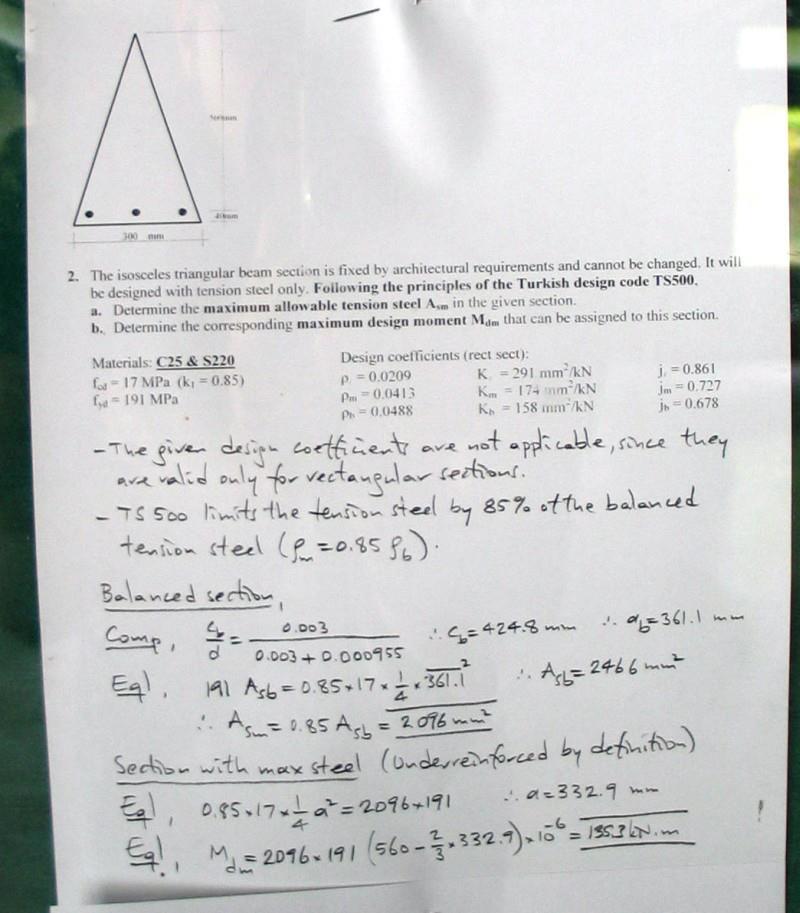 40mm
300 mm
2. The isosceles triangular beam section is fixed by architectural requirements and cannot be changed. It will
be designed with tension steel only. Following the principles of the Turkish design code TS500,
a. Determine the maximum allowable tension steel Asm in the given section.
b. Determine the corresponding maximum design moment Mdm that can be assigned to this section.
Materials: C25 & S220
fcd = 17 MPa (k1 = 0.85)
fyd = 191 MPa
Design coefficients (rect sect):
ρ = 0.0209 K = 291 mm²/kN j = 0.861
ρm = 0.0413 Km = 174 mm²/kN jm = 0.727
ρb = 0.0488 Kb = 158 mm²/kN jb = 0.678
- The given design coefficients are not applicable, since they
are valid only for rectangular sections.
- TS 500 limits the tension steel by 85% of the balanced
tension steel (ρm = 0.85 ρb).
Balanced section,
Comp, cb/d = 0.003/(0.003 + 0.000955) ∴ cb = 424.8 mm ∴ ab = 361.1 mm
Eql, 191 Asb = 0.85 * 17 * 1/4 * 361.1² ∴ Asb = 2466 mm²
∴ Asm = 0.85 Asb = 2096 mm²
Section with max steel (Underreinforced by definition)
Eql, 0.85 * 17 * 1/4 a² = 2096 * 191 ∴ a = 332.9 mm
Eql, Mdm = 2096 * 191 (560 - 2/3 * 332.9) * 10⁻⁶ = 135.3 kN.m